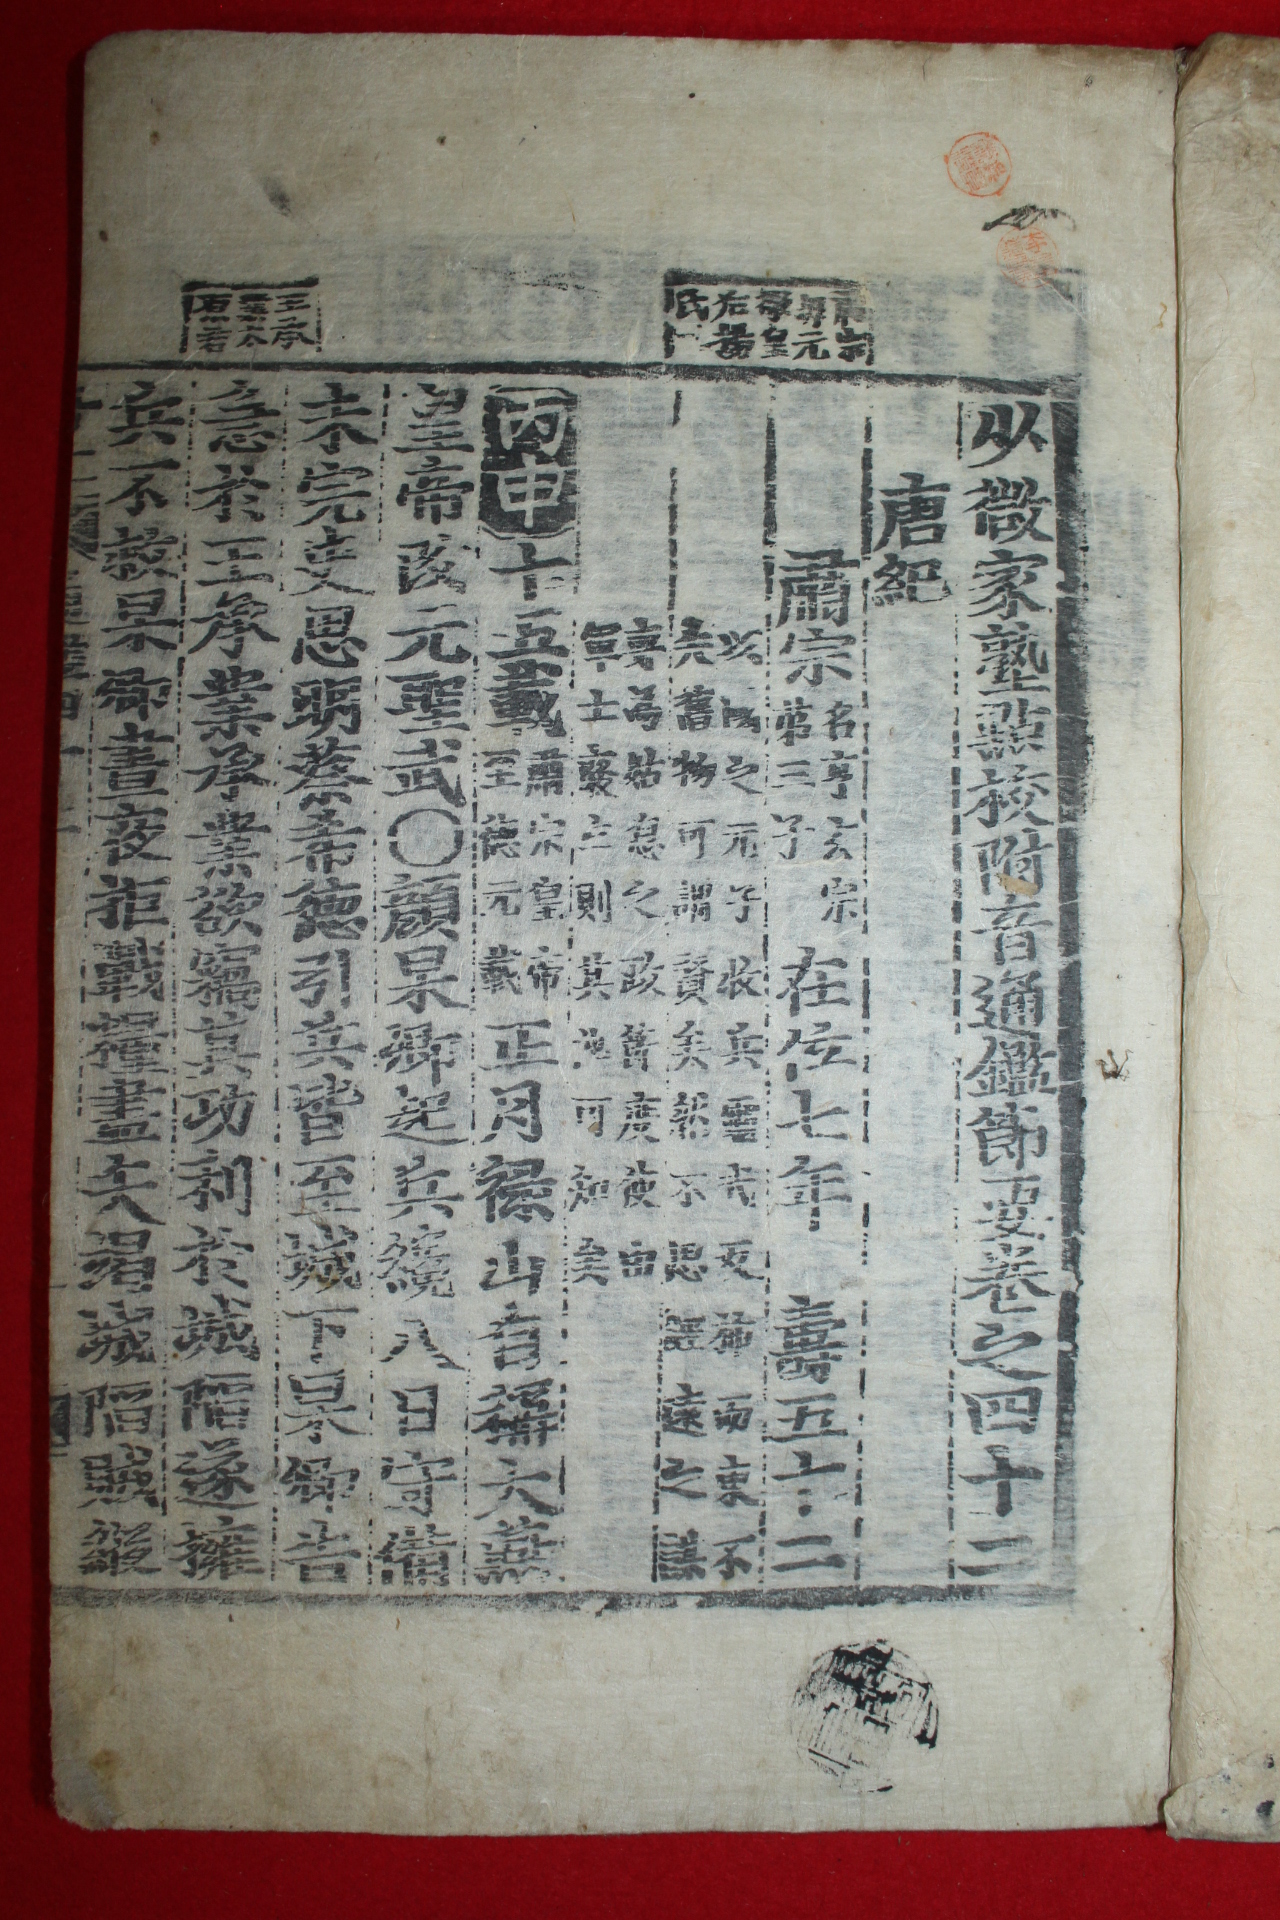 少微家塾點校附音通鑑節要卷之四十二
唐紀
肅宗 名亨玄宗第三子 在位七年 壽五十二
以國之元子收兵靈武反旆而東不
失舊物可謂賢矣然不思經遠之謨
專爲姑息之政舊度使由
軍士襲立則其他可知矣
丙申十五載 肅宗皇帝至德元載 正月祿山自稱大燕
皇帝改元聖武○顔杲卿起兵纔八日守備
未完史思明蔡希德引兵皆至城下杲卿告
急於王承業承業欲竊其功利於城陷遂擁
兵不救杲卿晝夜拒戰糧盡矢竭城陷賊縱